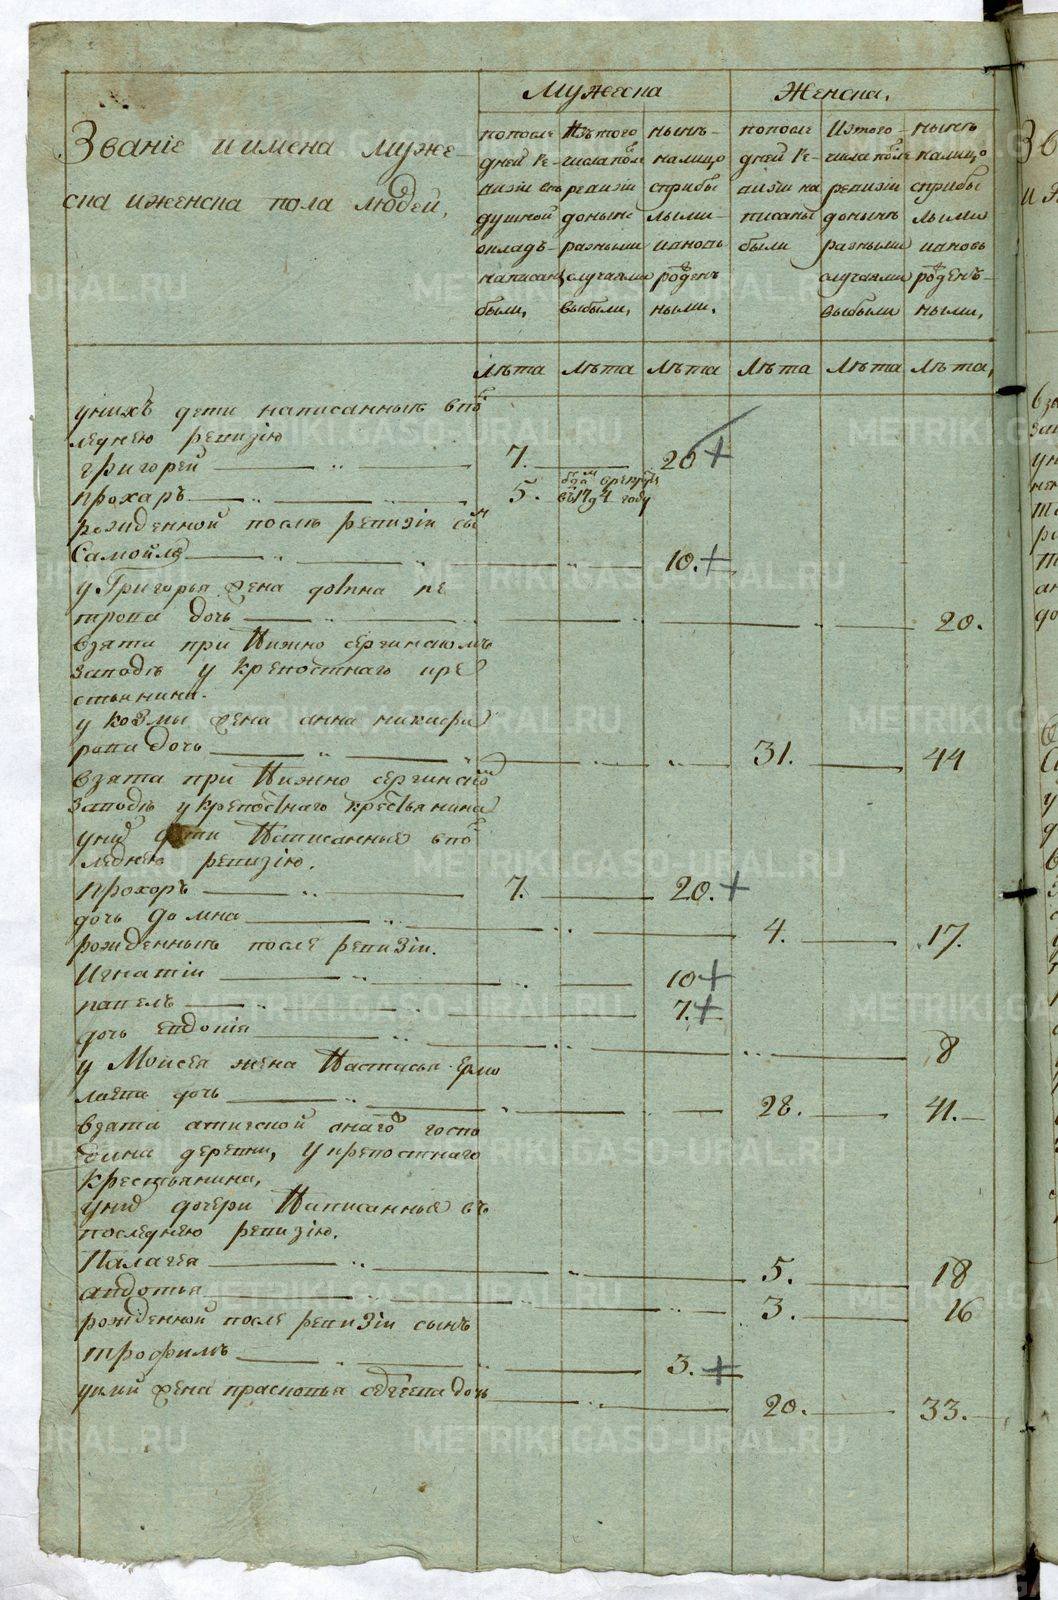 Мужеска
Женска,
Званiе и имена муже-
ска и женска пола людей,
по после
дней ре-
визiи въ
душной
окладъ-
написан
были,
Изъ того
числа после
ревизiи
до ныне
разными
случаями
выбыли,
нынѣ-
на лицо
с прибы
лыми-
и вновь
рожден
ными,
по после
дней ре-
визiи на
писаны
были
Из того-
числа после
ревизiи
до нынѣ
разными
случаями
выбыли
нынѣ
на лицо
с прибы
лыми
и вновь
рожденъ-
ными,
лѣта лѣта лѣта лѣта лѣта лѣта,
у нихъ дети написанныя в по
леднею ревизiю
григорей 7. 20
прохаръ 5. в рекруты
въ 1794 году
рожденной после ревизiи сын
Самойла 10.
у Григорья жена домна пе
трова дочь 20.
взята при Нижно сергинскомъ
заводѣ у крепостнаго кре
стьянина.
у козмы жена анна никифо
рова дочь 31. 44
взята при Нижно сергинско
заводѣ у крепостнаго крестьянина
у них дети Написанные в по
леднею ревизiю.
Прохоръ 7. 20.
дочь домна 4. 17.
рожденныя после ревизiи.
Игнатiи 10
павелъ 7.
дочь евдокiя 8
у Моисея жена Настасья Ермо
лаева дочь 28. 41.
взята ачитской онаго госпо
дина деревни, у крепостнаго
крестьянина,
у них дочери Написанные въ
последнею ревизiю.
Палагея 5. 18
авдотья 3. 16
рожденной после ревизiи сынъ
трофимъ 3.
жена прасковья дочь 20. 33.
METRIKI.GASO-URAL.RU